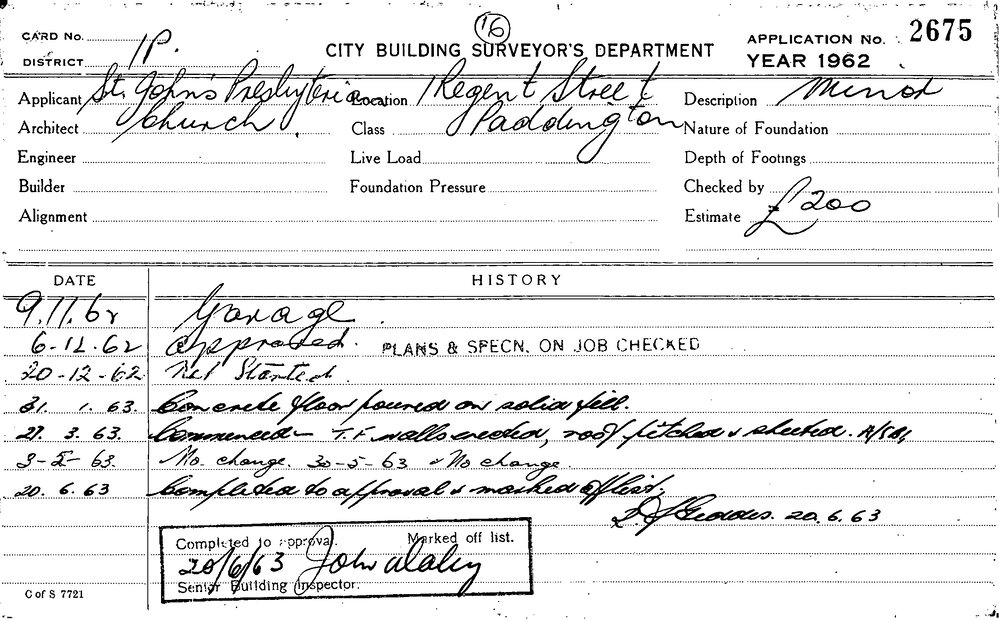 (16)
CARD No.
CITY BUILDING SURVEYOR'S DEPARTMENT
APPLICATION No. 2675
DISTRICT 1P.
YEAR 1962
Applicant St. John's Presbyterian
Location Regent Street
Description Minor
Architect Church.
Class Paddington
Nature of Foundation
Engineer
Live Load
Depth of Footings
Builder
Foundation Pressure
Checked by
Alignment
Estimate £200
DATE HISTORY
9.11.62 Garage.
6-12.62 Approved. PLANS & SPECN. ON JOB CHECKED
20-12-62 Not Started.
31. 1. 63. Concrete floor poured on solid fill.
27. 3. 63. Commenced - T.F walls erected, roof pitched & sheeted.
3-5-63. No change. 30-5-63 No change.
20. 6. 63 Completed to approval & marked off list.
Geddes. 20.6.63
Completed to approval. Marked off list.
20/6/63 John Daley
Senior Building Inspector.
C of S 7721